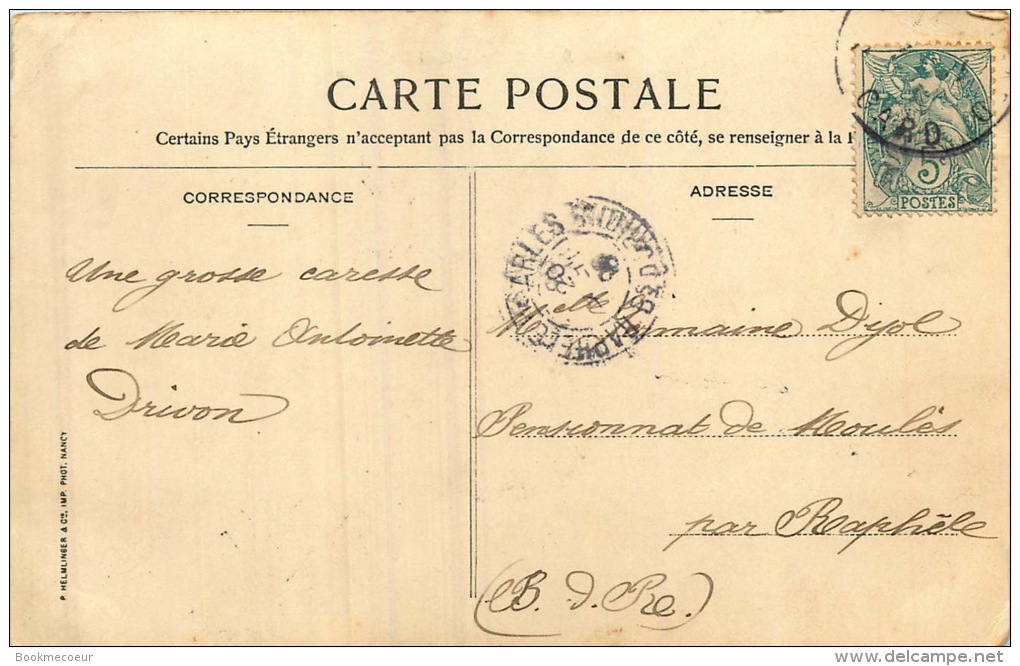 CARTE POSTALE
Certains Pays Étrangers n'acceptant pas la Correspondance de ce côté, se renseigner à la
CORRESPONDANCE
ADRESSE
5c
POSTES
GARD
ARLES
RAPHÈLE
B. DU R.
08
Une grosse caresse
de Marie Antoinette
Drivon
Melle Domaine Dijol
Pensionnat de Moulès
par Raphèle
(B. d. Re.)
P. HELMLINGER & Cie, IMP. PHOT. NANCY
Bookmecoeur
www.delcampe.net